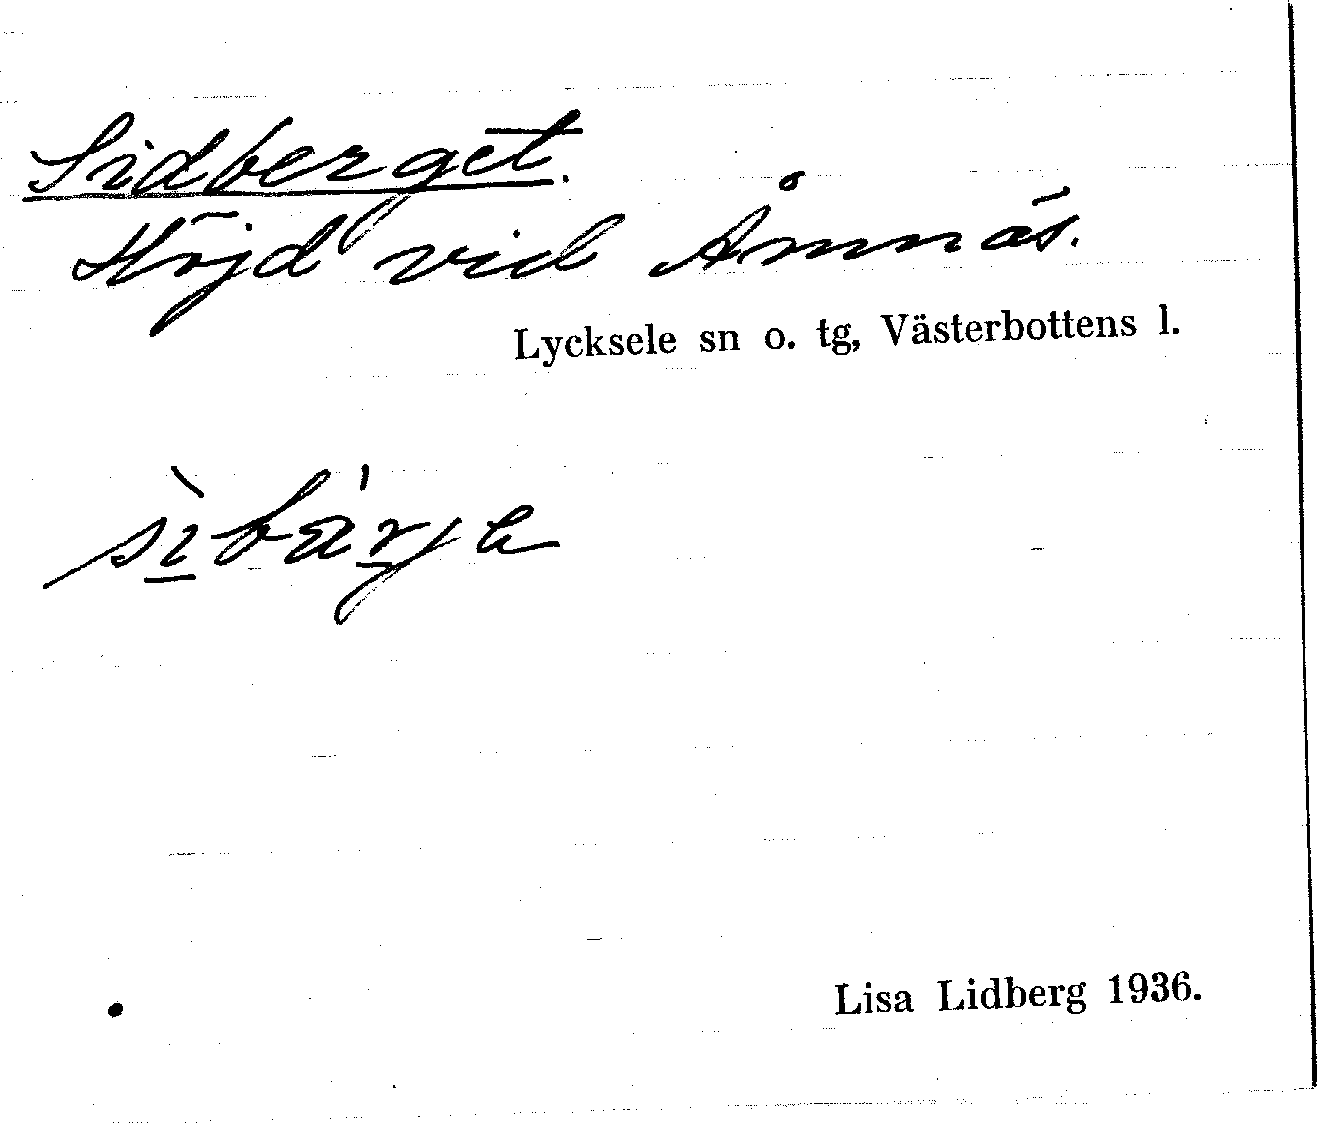 Sidberget.
Höjd vid Åmnäs.
Lycksele sn o. tg, Västerbottens l.
sìbárje
Lisa Lidberg 1936.